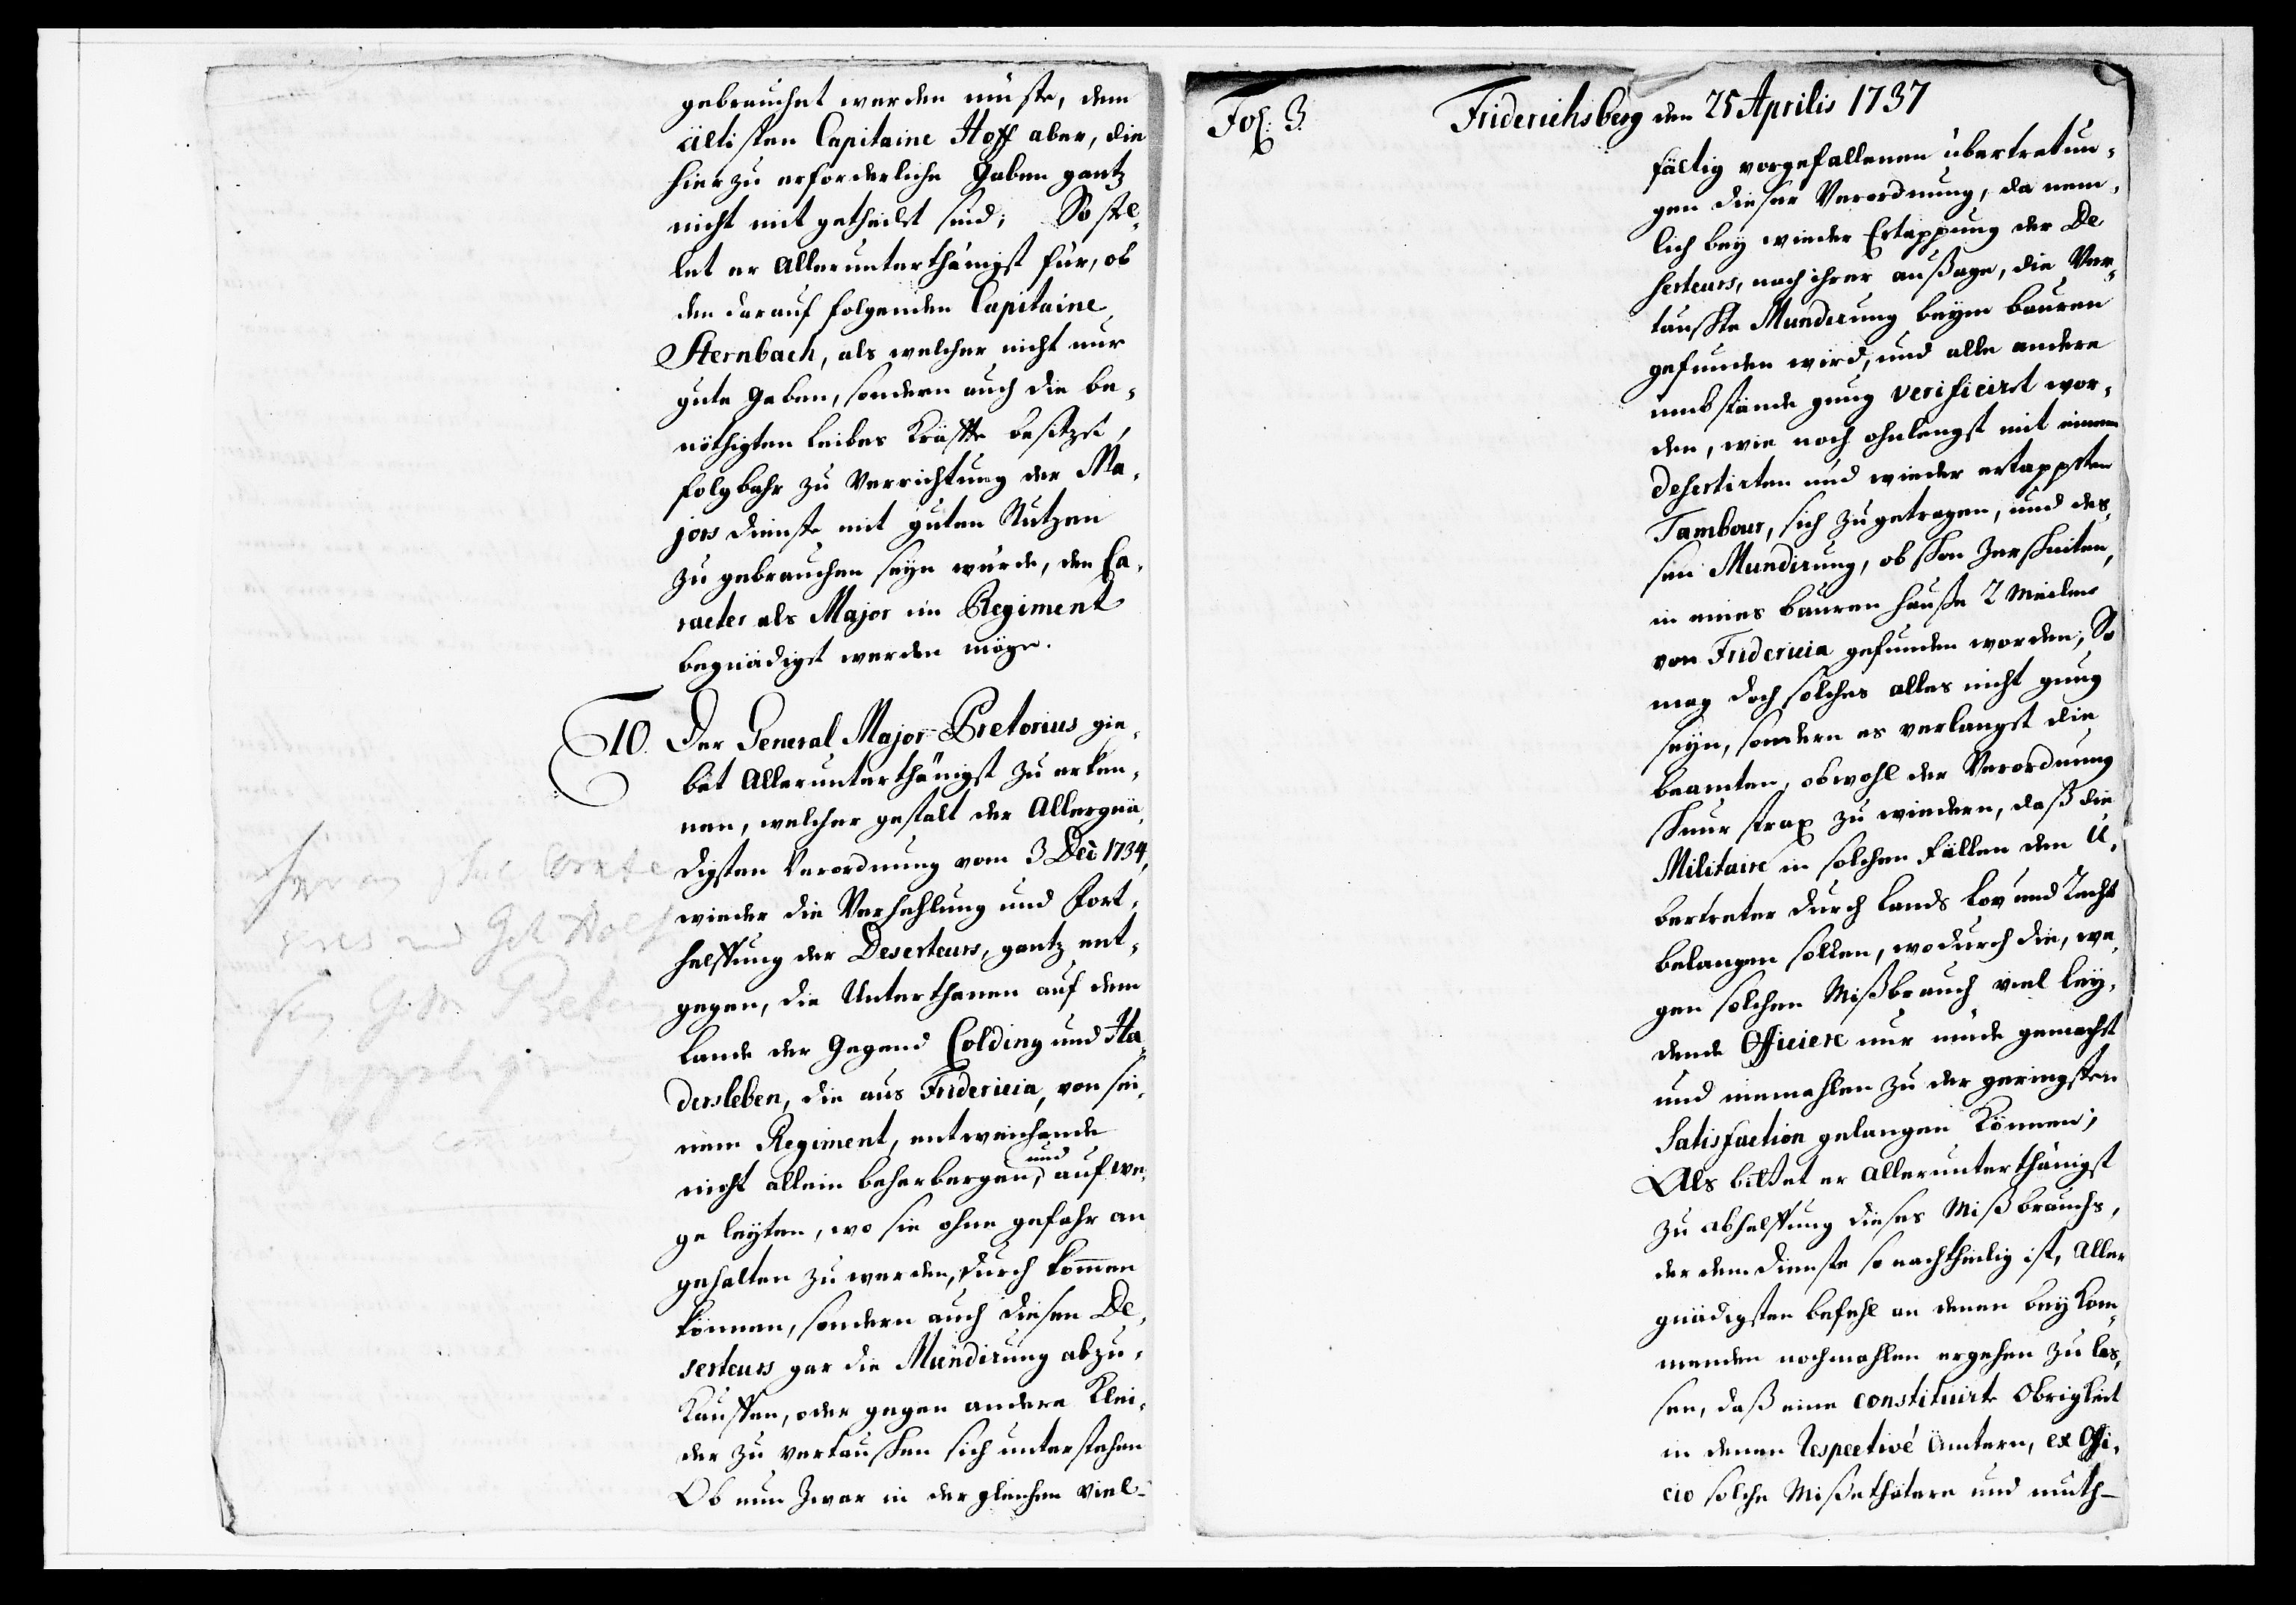 gebrauchet werden müste, dem
ältisten Capitaine Hoff aber, die
hierzu erforderliche Gaben gantz
nicht mit getheilet sind; So stel,
let er Allerunterthänigst für, ob
den darauf folgenden Capitaine
Sternbach, als welcher nicht nur
gute Gaben, sondern auch die be,
nöthigten Leibes Kräffte besitzet,
folgbahr zu Verrichtung der Ma,
jors Dienste mit guten Nutzen
zu gebrauchen seyn würde, den Ca,
racter als Major im Regiment
begnädiget werden möge.
10. Der General Major Pretorius gie,
bet Allerunterthänigst zu erken,
nen, welcher gestalt der Allergnä,
digsten Verordnung vom 3 Dec 1734,
wieder die Verhehlung und Fort,
helffung der Deserteurs, gantz ent,
gegen, die Unterthanen auf dem
Lande der Gegend Colding und Ha,
dersleben, die aus Fridericia, von sei,
nem Regiment, entweichende
nicht allein beherbergen, und auf We,
ge leyten, wo sie ohne gefahr an
gehalten zu werden, durch kommen
können, sondern auch diesen De,
serteurs gar die Mundirung abzu,
Kauffen, oder gegen andere Klei,
der zu vertauschen sich unterstehen
Ob nun Zwar in dergleichen viel-
Fol: 3.
Friderichsberg den 25 Aprilis 1737
fältig vorgefallenen übertretun,
gen dieser Verordnung, da nem,
lich bey wieder Ertappung der De
serteurs, nach ihrer außage, die Ver,
tauschte Mundirung beym bauren
gefunden wird, und alle andere
umbstände gnug verificirt wor,
den, wie noch ohnlengst mit einem
desertirten und wieder ertappten
Tambour, sich zu getragen, und des,
sen Mundirung, ob schon Zerschnitten,
in eines bauren hauße 2 Meilen
von Fridericia gefunden worden; So
mag doch solches alles nicht gnug
seyn, sondern es verlanget die
beamten, obwohl der Verordnung
schnur strax zu wiedern, daß die
Militaire in solchen Fällen den U,
bertreter durch Lands Lov und Recht
belangen sollen, wodurch die, we,
gen solchen Mißbrauch viel ley,
dende Officiere nur müde gemacht
und niemahlen zu der geringsten
Satisfaction gelangen können;
Als bittet er Allerunterthänigst
zu abhelffung dieses Mißbrauchs,
der dem Dienste so nachtheilig ist, Aller
gnädigsten befehl an denen bey kom,
menden nochmahlen ergehen zu las,
sen, daß eine constituirte Obrigkeit
in denen Respectivé Ämtern, ex Offi,
cio solche Mißethätere und muth-